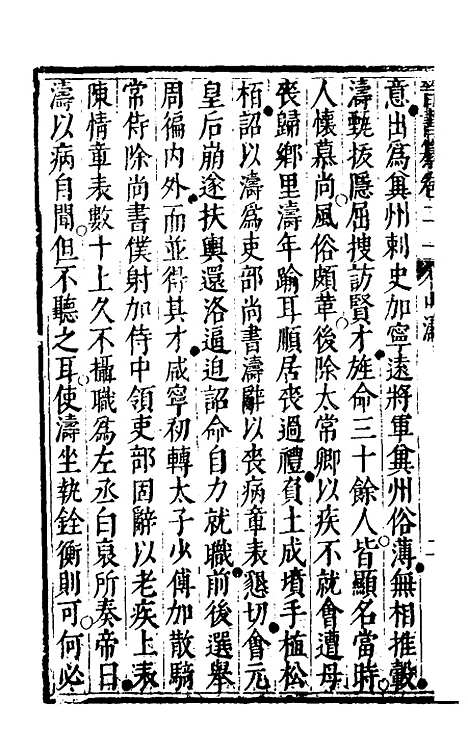 晉書纂卷二十一 山濤 二
意出爲兾州刺史加寧遠將軍兾州俗薄無相推轂
濤甄拔隱屈搜訪賢才旌命三十餘人皆顯名當時
人懷慕尚風俗頗革後除太常卿以疾不就會遭母
喪歸鄉里濤年踰耳順居喪過禮負土成墳手植松
栢詔以濤爲吏部尚書濤辭以喪病章表懇切會元
皇后崩遂扶輿還洛逼迫詔命自力就職前後選舉
周徧内外而並得其才咸寧初轉太子少傅加散騎
常侍除尚書僕射加侍中領吏部固辭以老疾上表
陳情章表數十上久不攝職爲左丞白裒所奏帝曰
濤以病自聞但不聽之耳使濤坐執銓衡則可何必